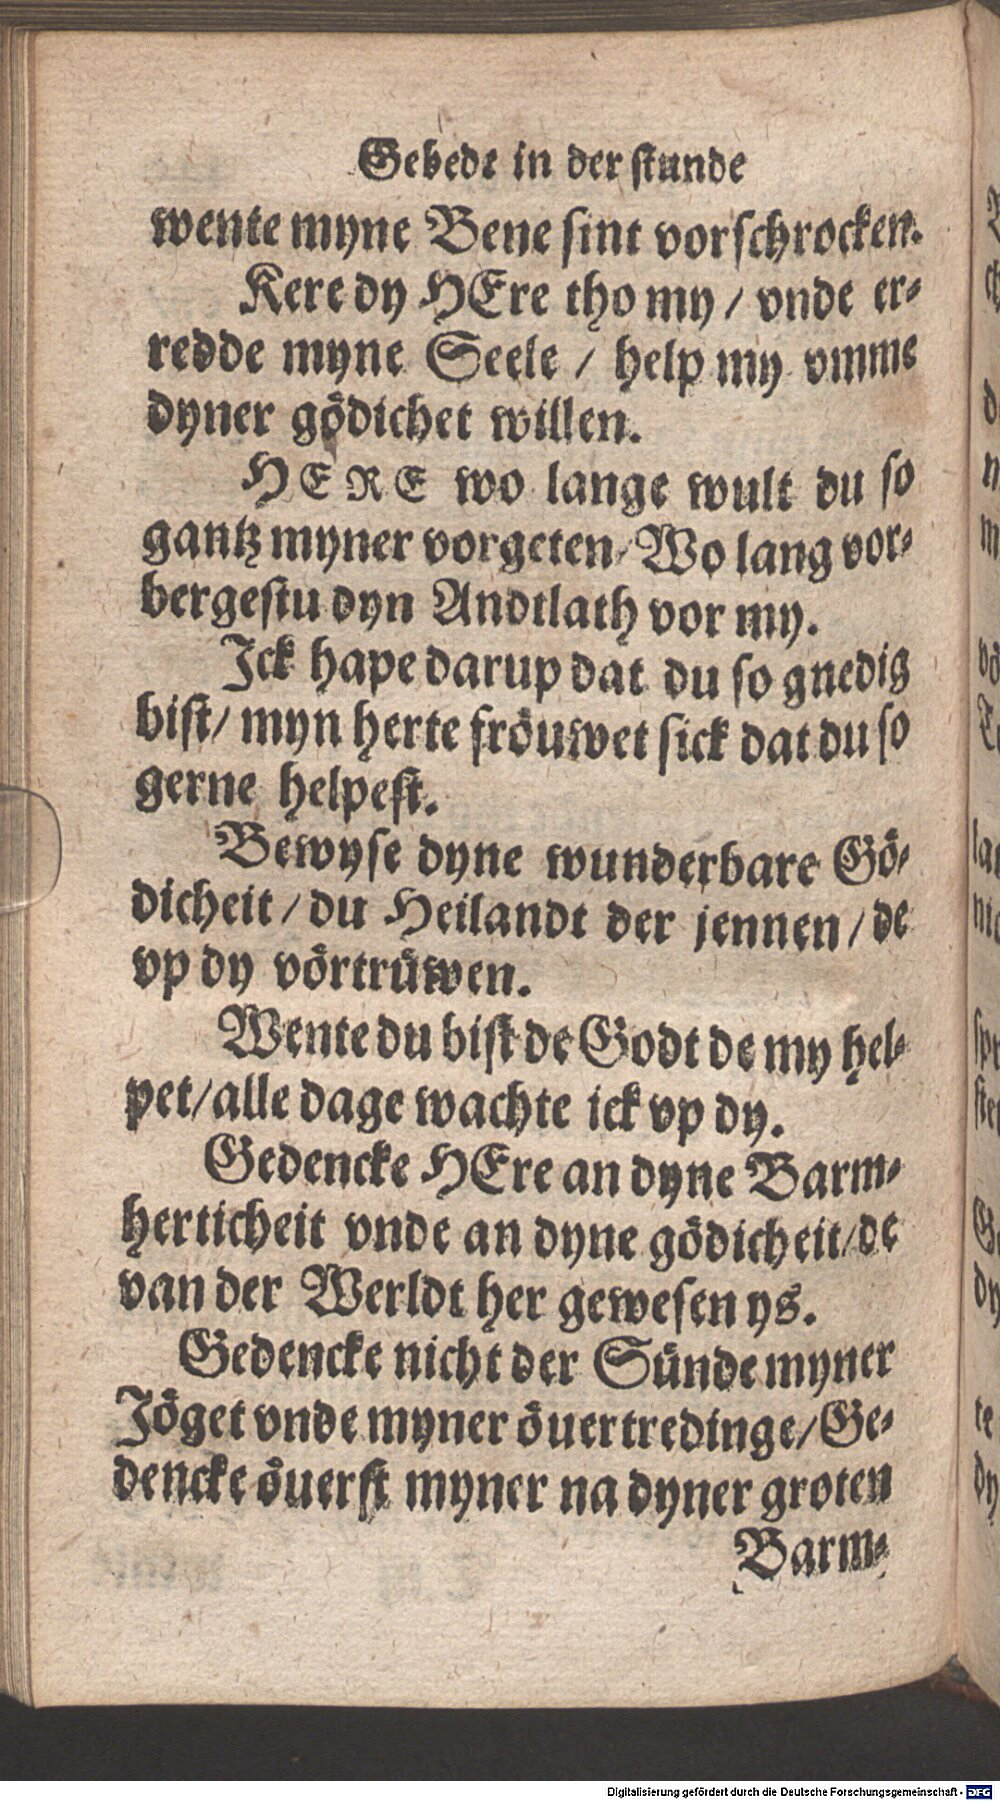 Gebede in der ſtunde
wente myne Bene ſint vorſchrocken.
Kere dy HEre tho my / vnde er⸗
redde myne Seele / help my vmme
dyner gödichet willen.
HERE wo lange wult du ſo
gantz myner vorgeten / Wo lang vor⸗
bergeſtu dyn Andtlath vor my.
Jck hape darup dat du ſo gnedig
biſt / myn herte fröuwet ſick dat du ſo
gerne helpeſt.
Bewyſe dyne wunderbare Gö⸗
dicheit / du Heilandt der jennen / de
vp dy vörtrüwen.
Wente du biſt de Godt de my hel⸗
pet / alle dage wachte ick vp dy.
Gedencke HEre an dyne Barm⸗
herticheit vnde an dyne gödicheit / de
van der Werldt her geweſen ys.
Gedencke nicht der Sünde myner
Jöget vnde myner öuertredinge / Ge⸗
dencke öuerſt myner na dyner groten
Barm⸗
Digitalisierung gefördert durch die Deutsche Forschungsgemeinschaft - DFG